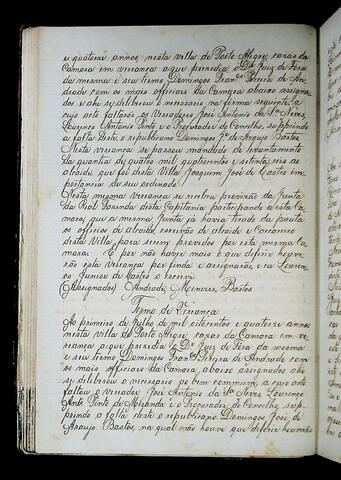 e quatorze annos, nesta villa de Porto Alegre, cazas da
Camara em vereança a que prezedia o Dr. Juiz de Fora
da mesma e seu termo, Domingos Franco. Pereira de An-
drade com os mais officiaes da Camara abaixo assigna-
dos e ahi se delibrou o necessario na forma seguinte, a
cujo acto faltarão os Vereadores José Antonio da Sa. Neves,
Lourenço Antonio Pinto e o Procurador do Concelho, suprindo
a falta deste o republicano Domingos Je. de Araujo Bastos
Nesta vereança se passou mandado de levantamento
da quantia de quatro mil quatrocentos e setenta reis ao
alcaide que foi desta Villa Joaquim José de Castro im-
portancia de seu ordenado.
Nesta mesma vereança se recebeu provizão da Junta
da Real Fazenda desta Capitania participando a esta Ca-
mara, que a mesma Junta já havia tirado da pauta
os officios de alcaide, escrivão do alcaide e Carcereiro
desta Villa para serem providos por esta mesma Ca-
mara. E por não haver mais o que deferir houve-
rão esta vereança por finda e assignarão, e eu Louren-
ço Junior de Castro o escrevi
(Assignados) Andrade, Menezes, Bastos
Termo de Vereança
Ao primeiro de Julho de mil oitocentos e quatorze annos
nesta villa de Porto Alegre, cazas da Camara em ve-
reança a que prezedia o Dr. Juiz de Fora da mesma
e seu termo, Domingos Franco. Pereira de Andrade com
os mais officiaes da Camara, abaixo assignados ahi
se delibrou o necessario ao bem commum, a cujo acto
faltou o vereador José Antonio da Sa. Neves Lourenço
Anto. Pinto de Miranda e o Procurador do Concelho, sup-
prindo a falta deste o republicano Domingos José de
Araujo Bastos, na qual não houve que deferir houverão